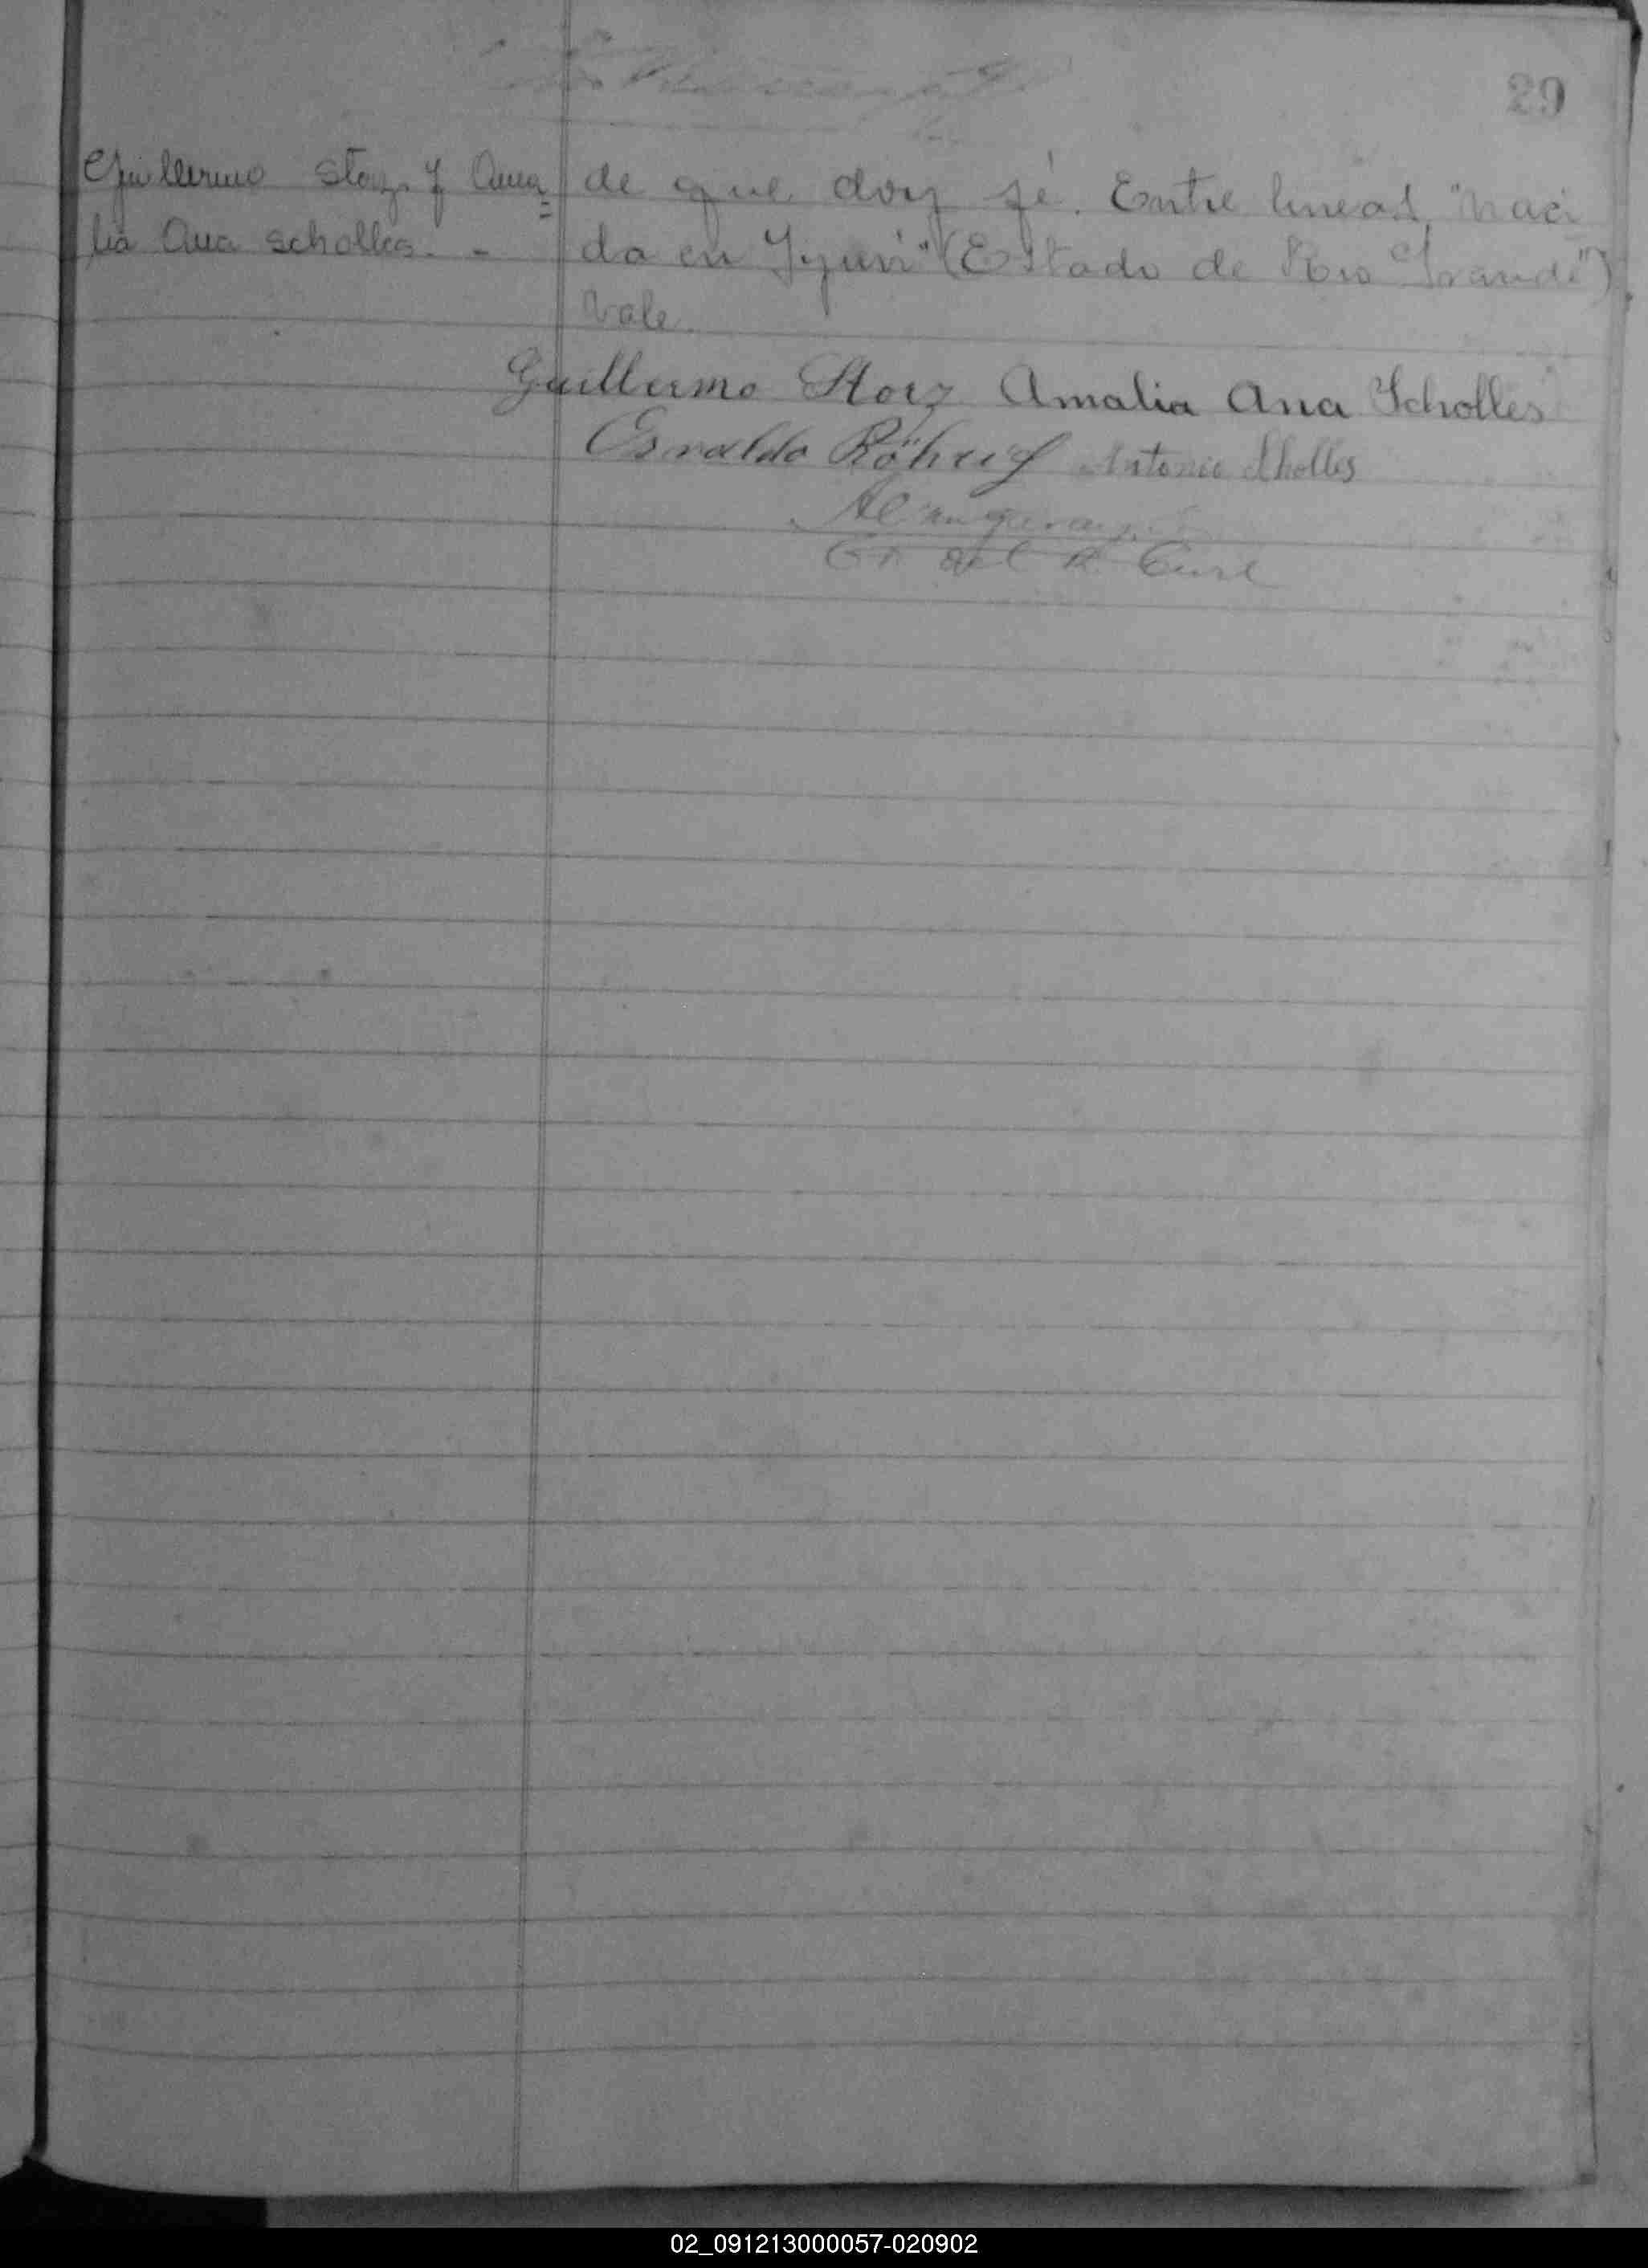 29
Guillermo Storz y Ama=
lia Ana Scholles. -
de que doy fé. Entre lineas "naci
da en Yjuri" (Estado de Rio Grande")
Vale.
Guillermo Storz Amalia Ana Scholles
Osvaldo Antonio Sholles
del R. Civil
02_091213000057-020902